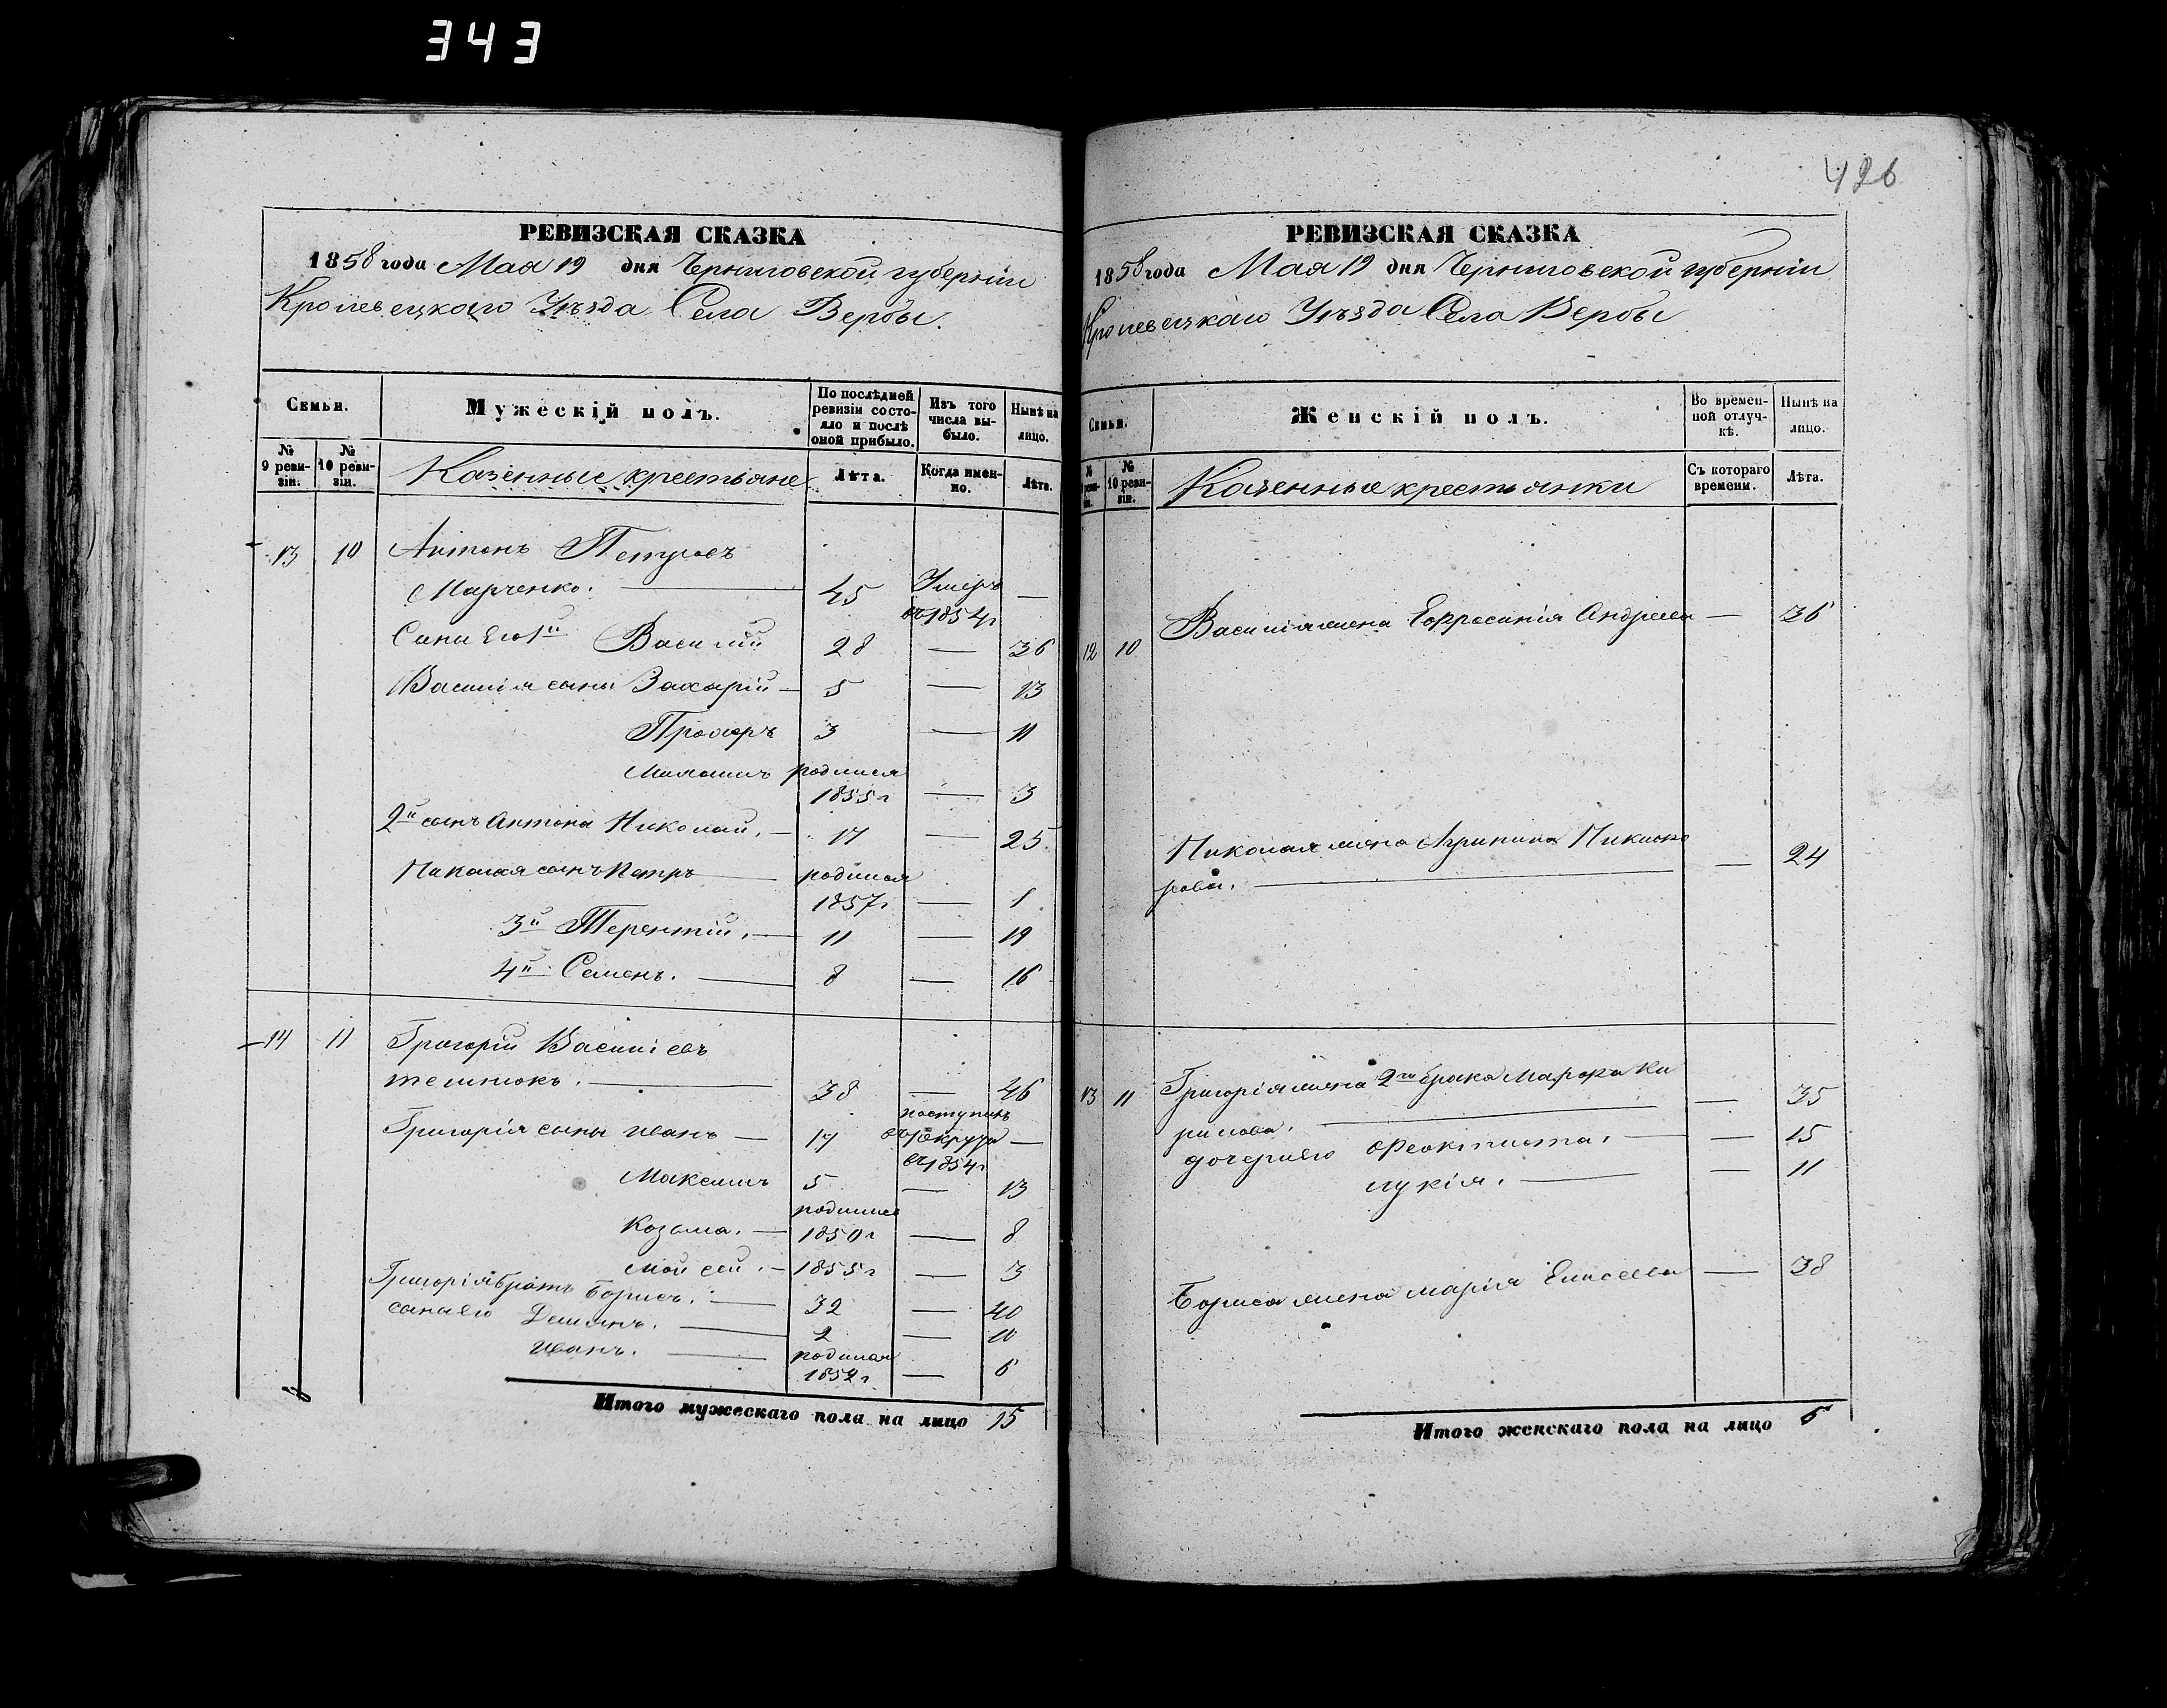 343
426
РЕВИЗСКАЯ СКАЗКА
1858 года Мая 19 дня Черниговской губерніи
Кролевецкаго Уѣзда Села Вербы.
Семьи.
Мужескій полъ.
По послѣдней ревизіи состояло и послѣ оной прибыло.
Изъ того числа выбыло.
Нынѣ на лицо.
№ 9 ревизіи.
№ 10 ревизіи.
Казенные крестьяне
Лѣта.
Когда именно.
Лѣта.
13 10 Антонъ Петровъ
Марченко. — 45 Умеръ въ 1854 г —
Сыны его 1й Василій 28 — 36
Василія сыны Захарій — 5 — 13
Прохоръ 3 — 11
родился
1855 г — 3
2й сынъ Антона Николай. — 17 — 25
Николая сынъ Петръ — родился
1857 г — 1
3й Терентій. — 11 — 19
4й Семенъ. — 8 — 16
14 11 Григорій Василіевъ
38 — 46
Григорія сыны Иванъ — 17 поступилъ въ рекруты въ 1854 г —
Максимъ 5 — 13
родился
Козьма. — 1850 г — 8
Мойсей. — 1855 г — 3
Григорія братъ Борисъ. — 32 — 40
сыны его Демьянъ. — 2 — 10
Иванъ. — родился
1852 г — 6
Итого мужескаго пола на лицо 15
РЕВИЗСКАЯ СКАЗКА
1858 года Мая 19 дня Черниговской губерніи
Кролевецкаго Уѣзда Села Вербы
Семьи.
Женскій полъ.
Во временной отлучкѣ.
Нынѣ на лицо.
№ 10 ревизіи.
Казенные крестьянки
Съ котораго времени.
Лѣта.
12 10 Василія жена Ефросинія Андреева — 36
Николая жена Агрипина Никифо
рова. — — 24
13 11 Григорія жена 2го брака Марфа Ки
рилова. — — 35
дочери его Феоктиста. — — 15
Лукія. — — 11
Бориса жена Марія Елисеева — 38
Итого женскаго пола на лицо 6